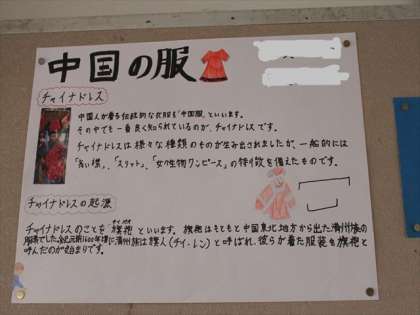 中国の服
チャイナドレス
中国人が着る伝統的な衣服を「中国服」といいます。
その中でも一番良く知られているのが、チャイナドレスです。
チャイナドレスは様々な種類のものが生み出されましたが、一般的には
「高い襟」、「スリット」、「女の生物ワンピース」の特徴を備えたものです。
チャイナドレスの起源
チャイナドレスのことを旗袍といいます。旗袍はそもそも中国東北地方から出た満州族の
服装でした。紀元前1600年頃に満州族は旗人(チイ・レン)と呼ばれ、彼らが着た服装を旗袍と
呼んだのが始まりです。